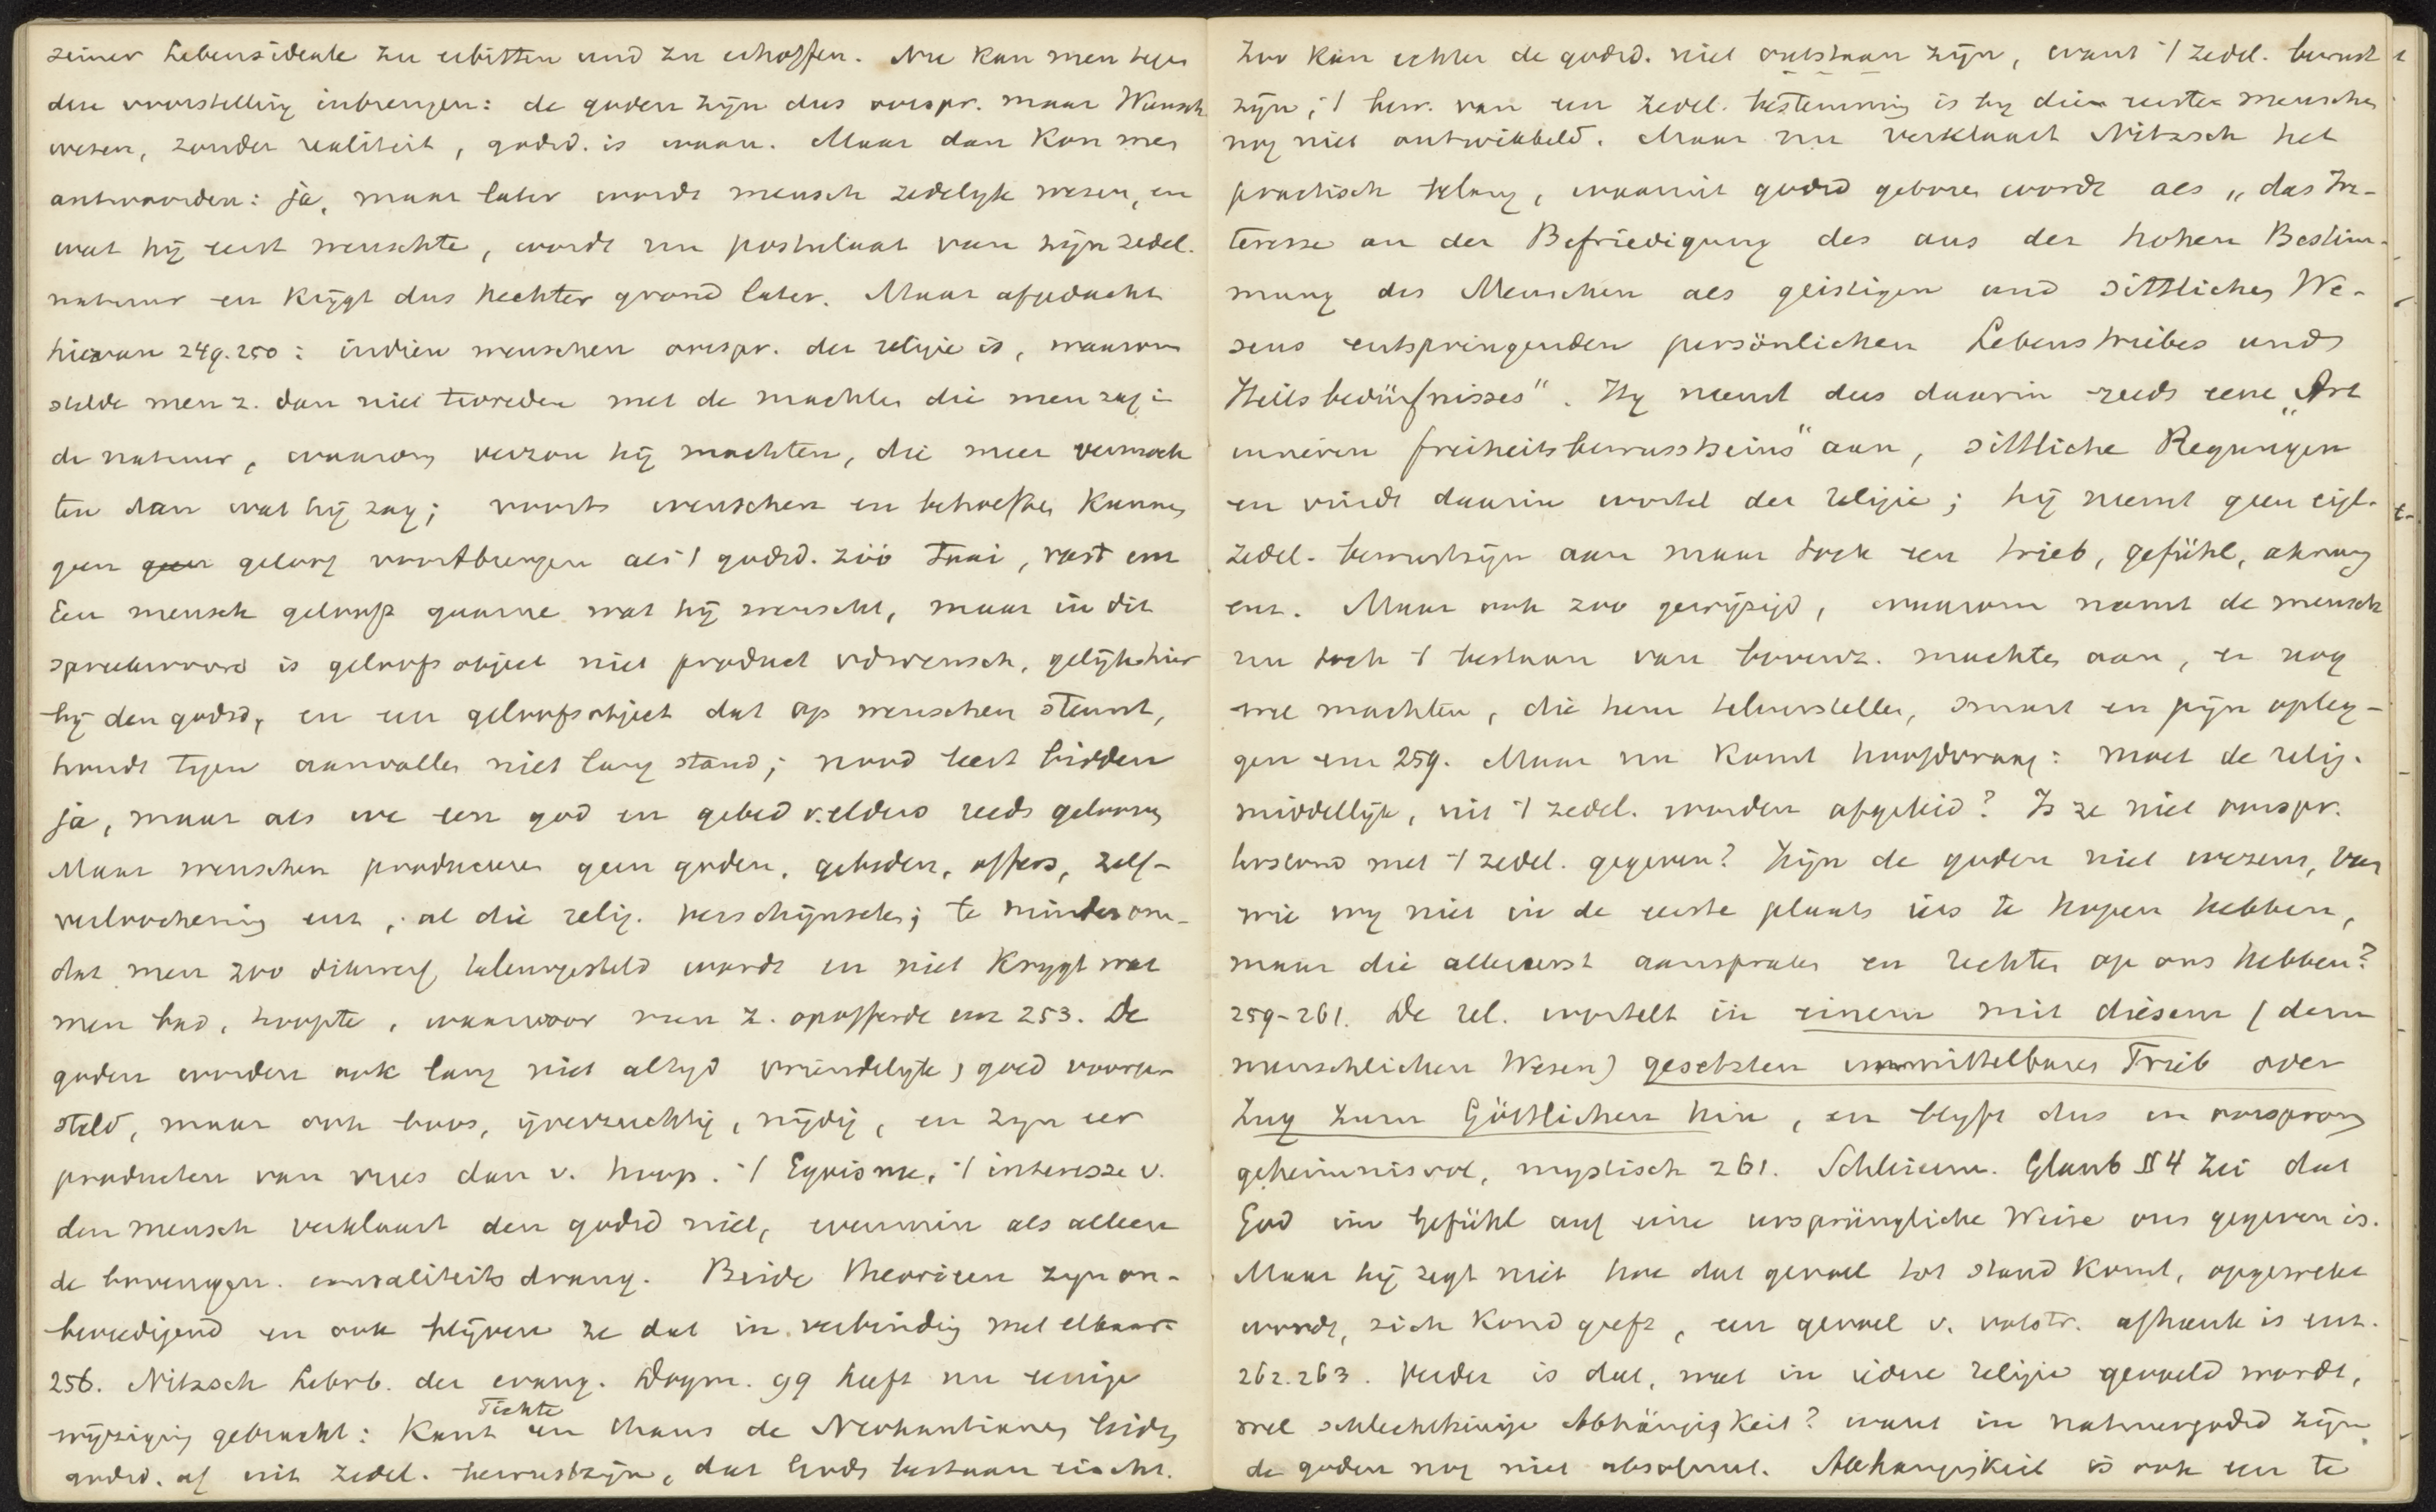 seiner Lebensideale zu erbitten und zu erhoffen. Nu kan men tegen
deze voorstelling inbrengen: de goden zijn dus oorspr. maar Wunsch
wesen, zonder realiteit, godsd. is waan. Maar dan kan men
antwoorden: ja, maar later wordt mensch zedelyk wezen, en
wat hij eerst wenschte, wordt nu postulaat van zijn zedel.
natuur en krijgt dus hechter grond later. Maar afgedacht
hiervan 249.250: indien wenschen oorspr. der religie is, waarom
stelde men z. dan niet tevreden met de machten die men zag in
de natuur, waarom verzon hij machten, die meer vermoch
ten dan wat hij zag; voorts wenschen en behoeften kunnen
geen geen geloof voortbrengen als 't godsd. zóó taai, vast enz
Een mensch gelooft gaarne wat hij wenscht, maar in dit
spreekwoord is geloofsobject niet product v d wensch, gelijk hier
bij den godsd, en een geloofsobject dat op wenschen steunt,
houdt tegen aanvallen niet lang stand; nood leert bidden
ja, maar als we een god en gebed v. elders reeds gelooven
Maar wenschen produceeren geen goden, gebeden, offers, zelf-
verloochening enz, al die relig. verschijnselen; te minder om-
dat men zoo dikwerf teleurgesteld wordt en niet krygt wat
men bad, hoopte, waarvoor men z. opofferde enz 253. De
goden worden ook lang niet altyd vriendelyk, goed voorge-
steld, maar ook boos, ijverzuchtig, nijdig, en zyn eer
producten van vrees dan v. hoop. 't Egoisme, 't interesse v.
den mensch verklaart den godsd niet, evenmin als alleen
de bovengen. causaliteitsdrang. Beide theorieen zyn on-
bevredigend en ook blijven ze dat in verbinding met elkaar
256. Nitzsch Lehrb. der evang. Dogm. 99 heeft nu eenige
Fichte
wijziging gebracht: Kant en thans de Neokantianen leiden
godsd. af uit zedel. bewustzijn, dat Gods bestaan eischt.
Zoo kan echter de godsd. niet ontstaan zijn, want 't zedel. bewust
zijn, 't bew. van een zedel. bestemming is by die eerste menschen
nog niet ontwikkeld. Maar nu verklaart Nitzsch het
practisch belang, waaruit godsd geboren wordt als „das In-
teresse an der Befriedigung des aus der hohen Bestim-
mung des Menschen als geistigen und sittlichen We-
sens entspringenden persönlichen Lebenstriebes und
Heilsbedürfnisses". Hy neemt dus daarin reeds eene „Art
inneren Freiheitsbewusstseins" aan, sittliche Regungen
en vindt daarin wortel der religie; hij neemt geen eigl.
zedel. bewustzijn aan maar toch een trieb, gefühl, ahnung
enz. Maar ook zoo gewijzigd, waarom neemt de mensch
nu toch 't bestaan van bovenz. machten aan, en nog
wel machten, die hem teleurstellen, smart en pijn opleg-
gen enz 259. Maar nu komt hoofdvraag: moet de relig.
middellijk, uit 't zedel. worden afgeleid? Is ze niet oorspr.
bestaand met 't zedel. gegeven? Zijn de goden niet wezens, van
wie wy niet in de eerste plaats iets te hopen hebben,
maar die allereerst aanspraken en rechten op ons hebben?
259-261. De rel. wortelt in einem mit diesem (dem
menschlichen Wesen) gesetzten unmittelbaren Trieb oder
Zug zum Göttlichen hin, en blyft dus in oorsprong
geheimnisvol, mystisch 261. Schleierm. Glaub § 4 zei dat
God im Gefühl auf eine ursprüngliche Weise ons gegeven is.
Maar hij zegt niet hoe dat gevoel tot stand komt, opgewekt
wordt, zich kond geeft, een gevoel v. volstr. afhank is enz.
262.263. Verder is dat, wat in iedere religie gevoeld wordt,
wel schlechthinige Abhängigkeit? want in natuurgodsd zijn
de goden nog niet absoluut. Abhangigkeit is ook een te